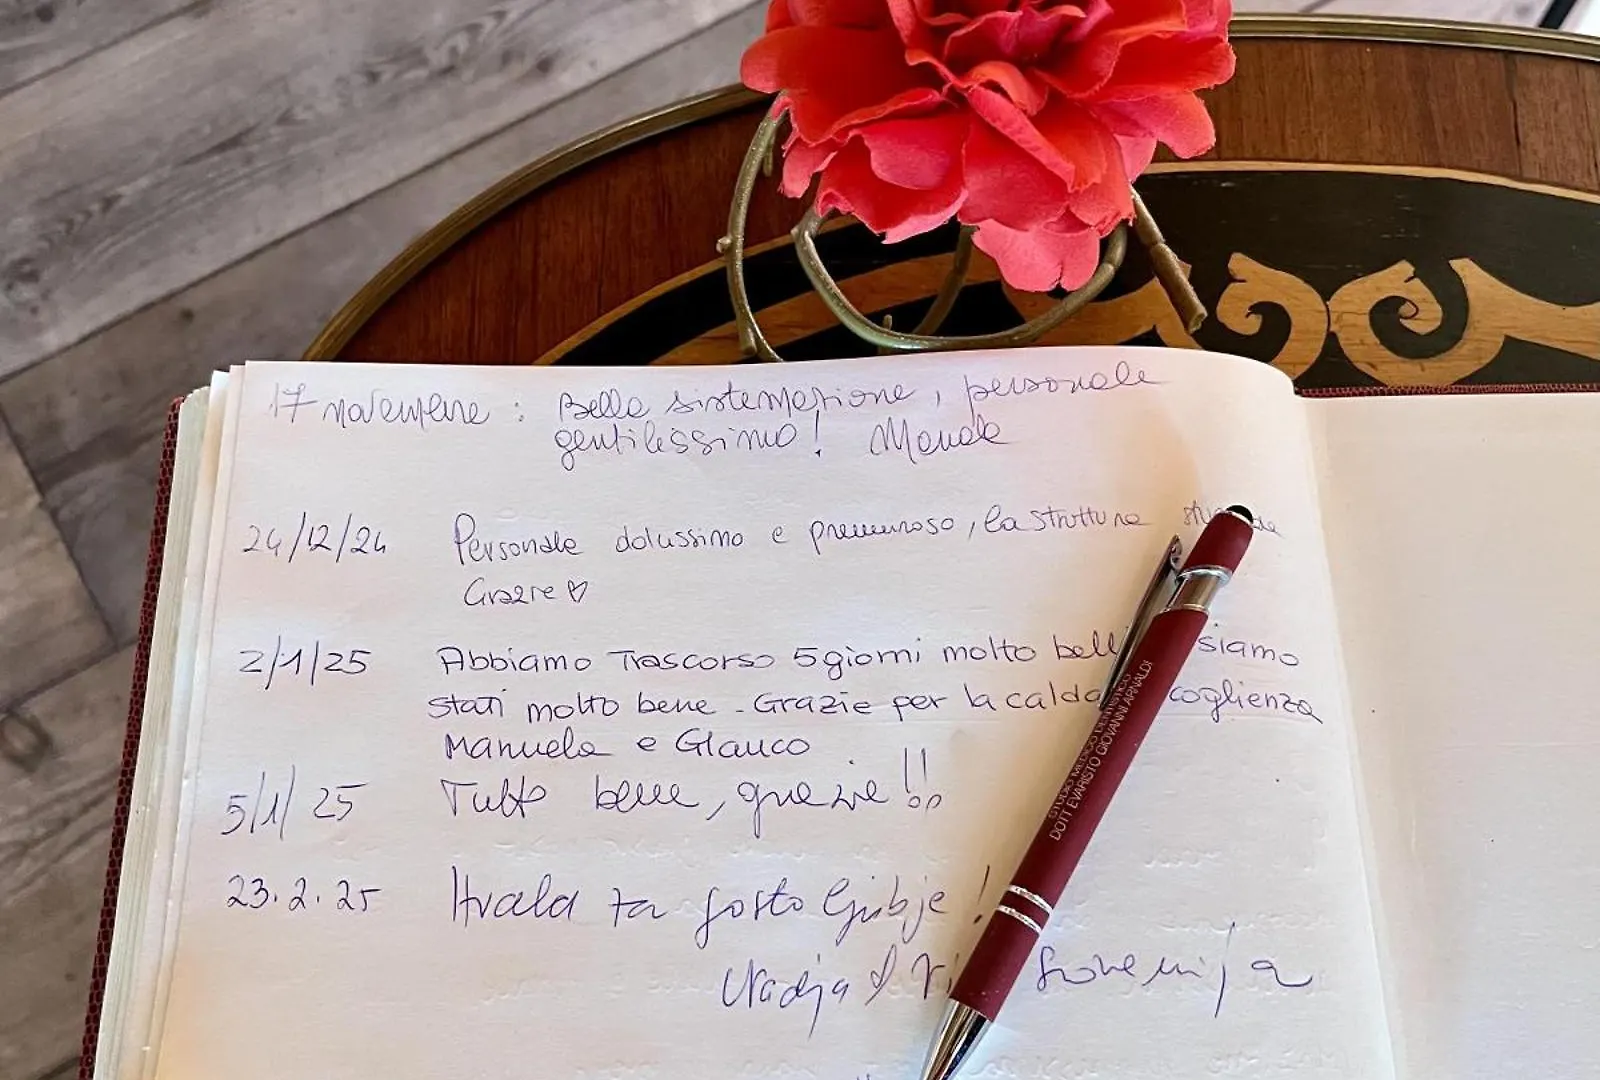 17 novembre : Bella sistemazione, personale
gentilissimo! Manola
24/12/24 Personale dolcissimo e premuroso, la struttura
Grazie ♡
2/1/25 Abbiamo Trascorso 5 giorni molto belli siamo
stati molto bene - Grazie per la calda coglienza
Manuela e Glauco
5/1/25 Tutto bene, grazie!!
23.2.25 Hvala za gostoljubje!
Nadja
Slovenija
STUDIO MEDICO DENTISTICO
DOTT EVARISTO GIOVANNI ARNALDI